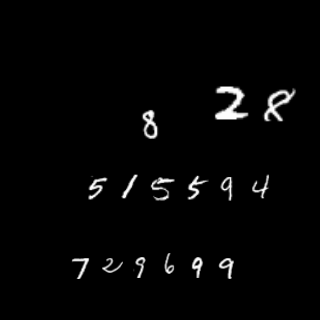 28
8
515594
729699